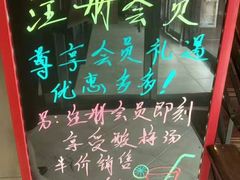 注册会员
尊享会员礼遇
优惠多多！
另：注册会员即刻
享受酸梅汤
半价销售